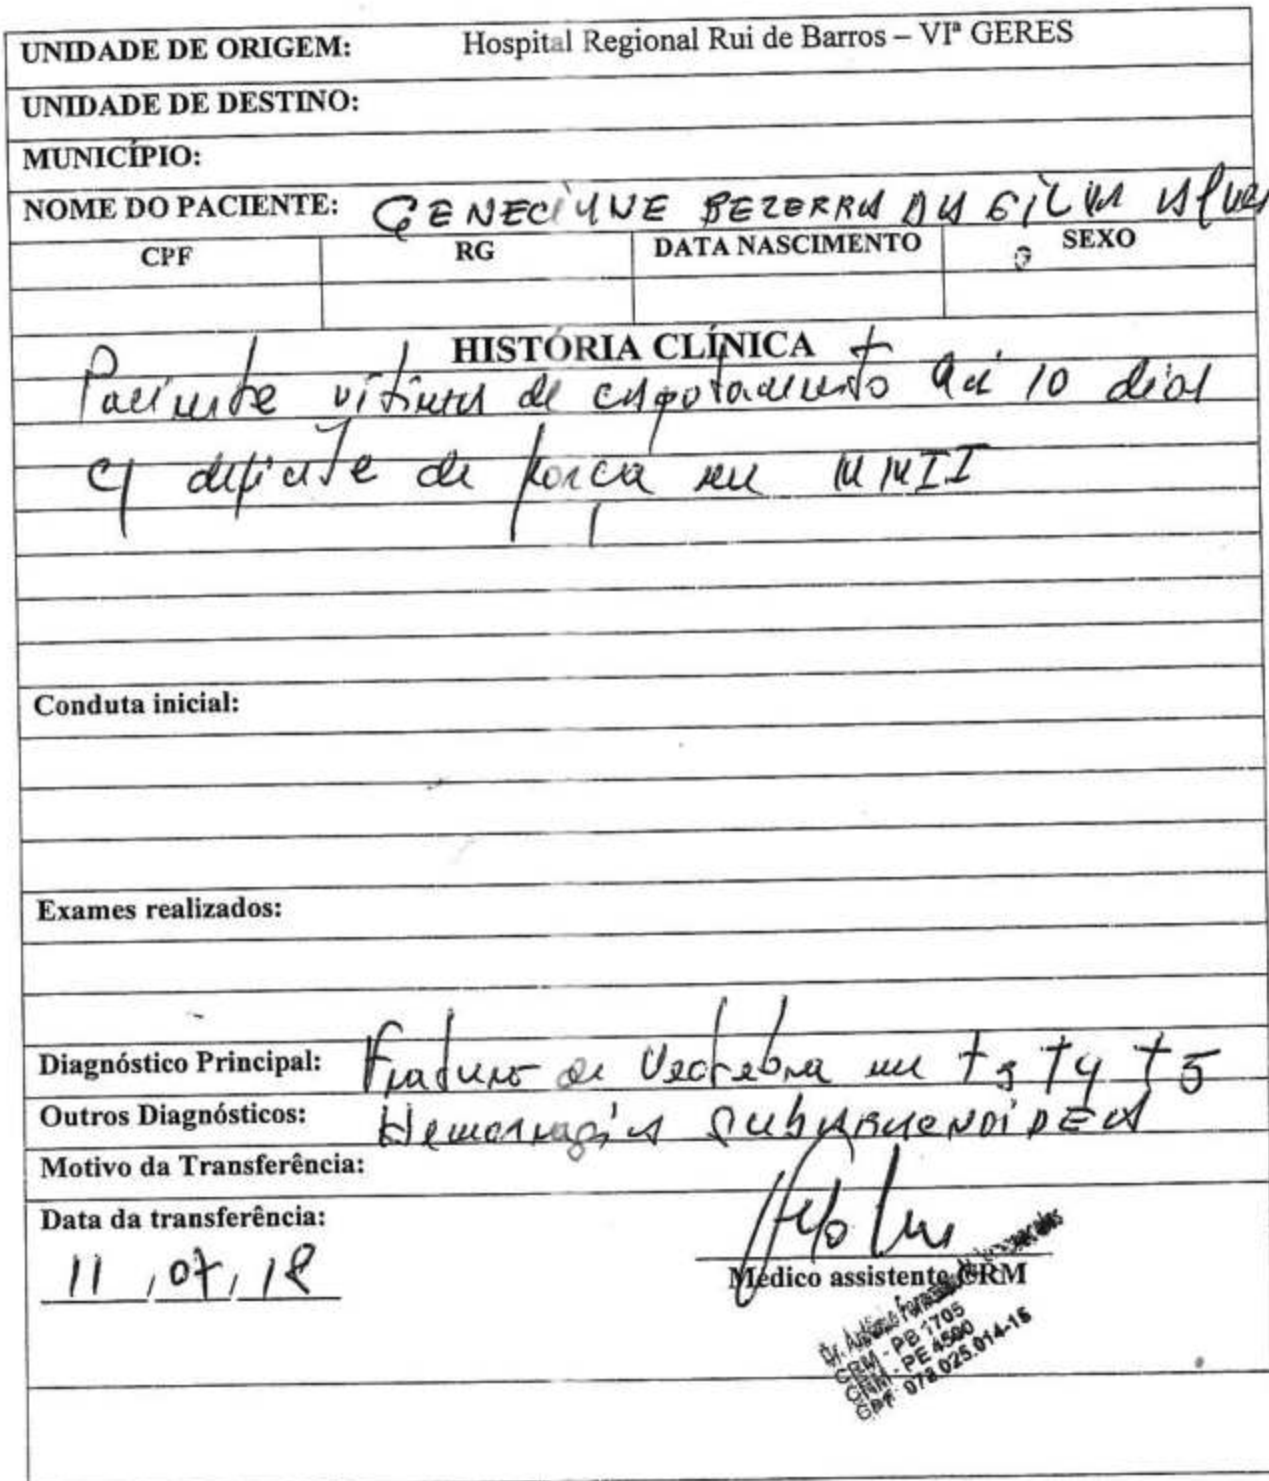 UNIDADE DE ORIGEM: Hospital Regional Rui de Barros – VIª GERES
UNIDADE DE DESTINO:
MUNICÍPIO:
NOME DO PACIENTE: GENECIANE BEZERRA DA SILVA Alves
CPF RG DATA NASCIMENTO SEXO
HISTÓRIA CLÍNICA
Paciente vítima de capotamento há 10 dias
c/ deficite de força em MMII
Conduta inicial:
Exames realizados:
Diagnóstico Principal: Fratura de Vertebra em T3 T4 T5
Outros Diagnósticos: Hemorragia SUBARACNOIDEA
Motivo da Transferência:
Data da transferência:
11 / 07 / 18
Médico assistente CRM
Dr. Antônio
CRM - PB 1705
CRM - PE 4500
CPF 078.025.014-15